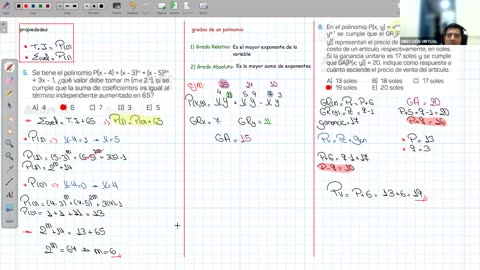 propiedades:
• T.I = P(0)
• Σcoef = P(1)
5. Se tiene el polinomio P(x - 4) = (x - 3)ᵐ + (x - 5)²ᵐ
+ 3x - 1, ¿qué valor debe tomar m (m∈Z⁺), si se
cumple que la suma de coeficientes es igual al
término independiente aumentado en 65?
A) 4
6
C) 3
D) 7
E) 5
• Σcoef = T.I + 65
P(1) = P(0) + 65
• P(1) => x-4=1 → x=5
P(1) = 2ᵐ + 14
• P(0) => x-4=0 → x=4
P(0) = 1 + 1 + 11 = 13
• 2ᵐ + 14 = 13 + 65
2ᵐ = 64 → m = 6
grados de un polinomio
1) Grado Relativo: Es el mayor exponente de la
variable
2) Grado Absoluto: Es la mayor suma de exponentes
GRx = 7
GRy = 11
GA = 15
8. En el polinomio P(x, y) =
se cumple que el GR
y] representan el precio de
costo de un artículo, respectivamente, en soles.
Si la ganancia unitaria es 17 soles y se cumple
que GA[P(x, y)] = 20, indique como respuesta a
cuánto asciende el precio de venta del artículo.
A) 13 soles
B) 18 soles
C) 17 soles
19 soles
E) 20 soles
GR(x) = Pv = P+6
ganancia = 17
GA = 20
P+5+q-1 = 20
P+q = 16
Pv = Pc + gan
P+6 = q-1+17
P-q = 10
P = 13
q = 3
Pv = P+6 = 13+6 = 19
DIRECCIÓN VIRTUAL